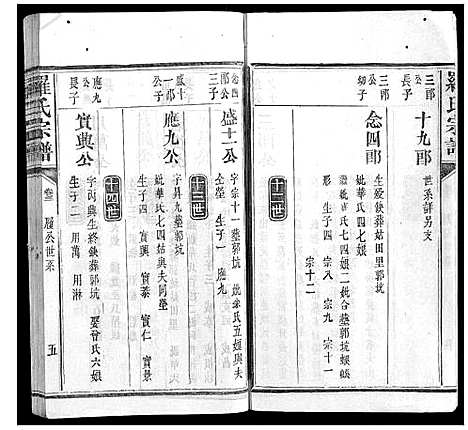 羅氏宗譜
三郎公長子
十九郎
世系詳另支
三郎公幼子
念四郎
生歿缺葬姑田里郭坑
繼妣華氏七四娘二妣合葬郭坑娘
形 生子四 宗八 宗九 宗十一
宗十二
十二世
念四郎公三子
盛十一公
字宗十一葬郭坑 妣朱氏五娘與夫
仝塋 生子一 應九
十三世
盛十一郎公子
應九公
字昇九葬郭坑
妣華氏七四姑與夫同塋
生子四 實興 實泰 實仁 實景
十四世
應九公長子
實興公
字丙興生終缺葬郭坑 娶曾氏六娘
生子二 用萬 用淋
羅氏宗譜
卷三 履公世系
五